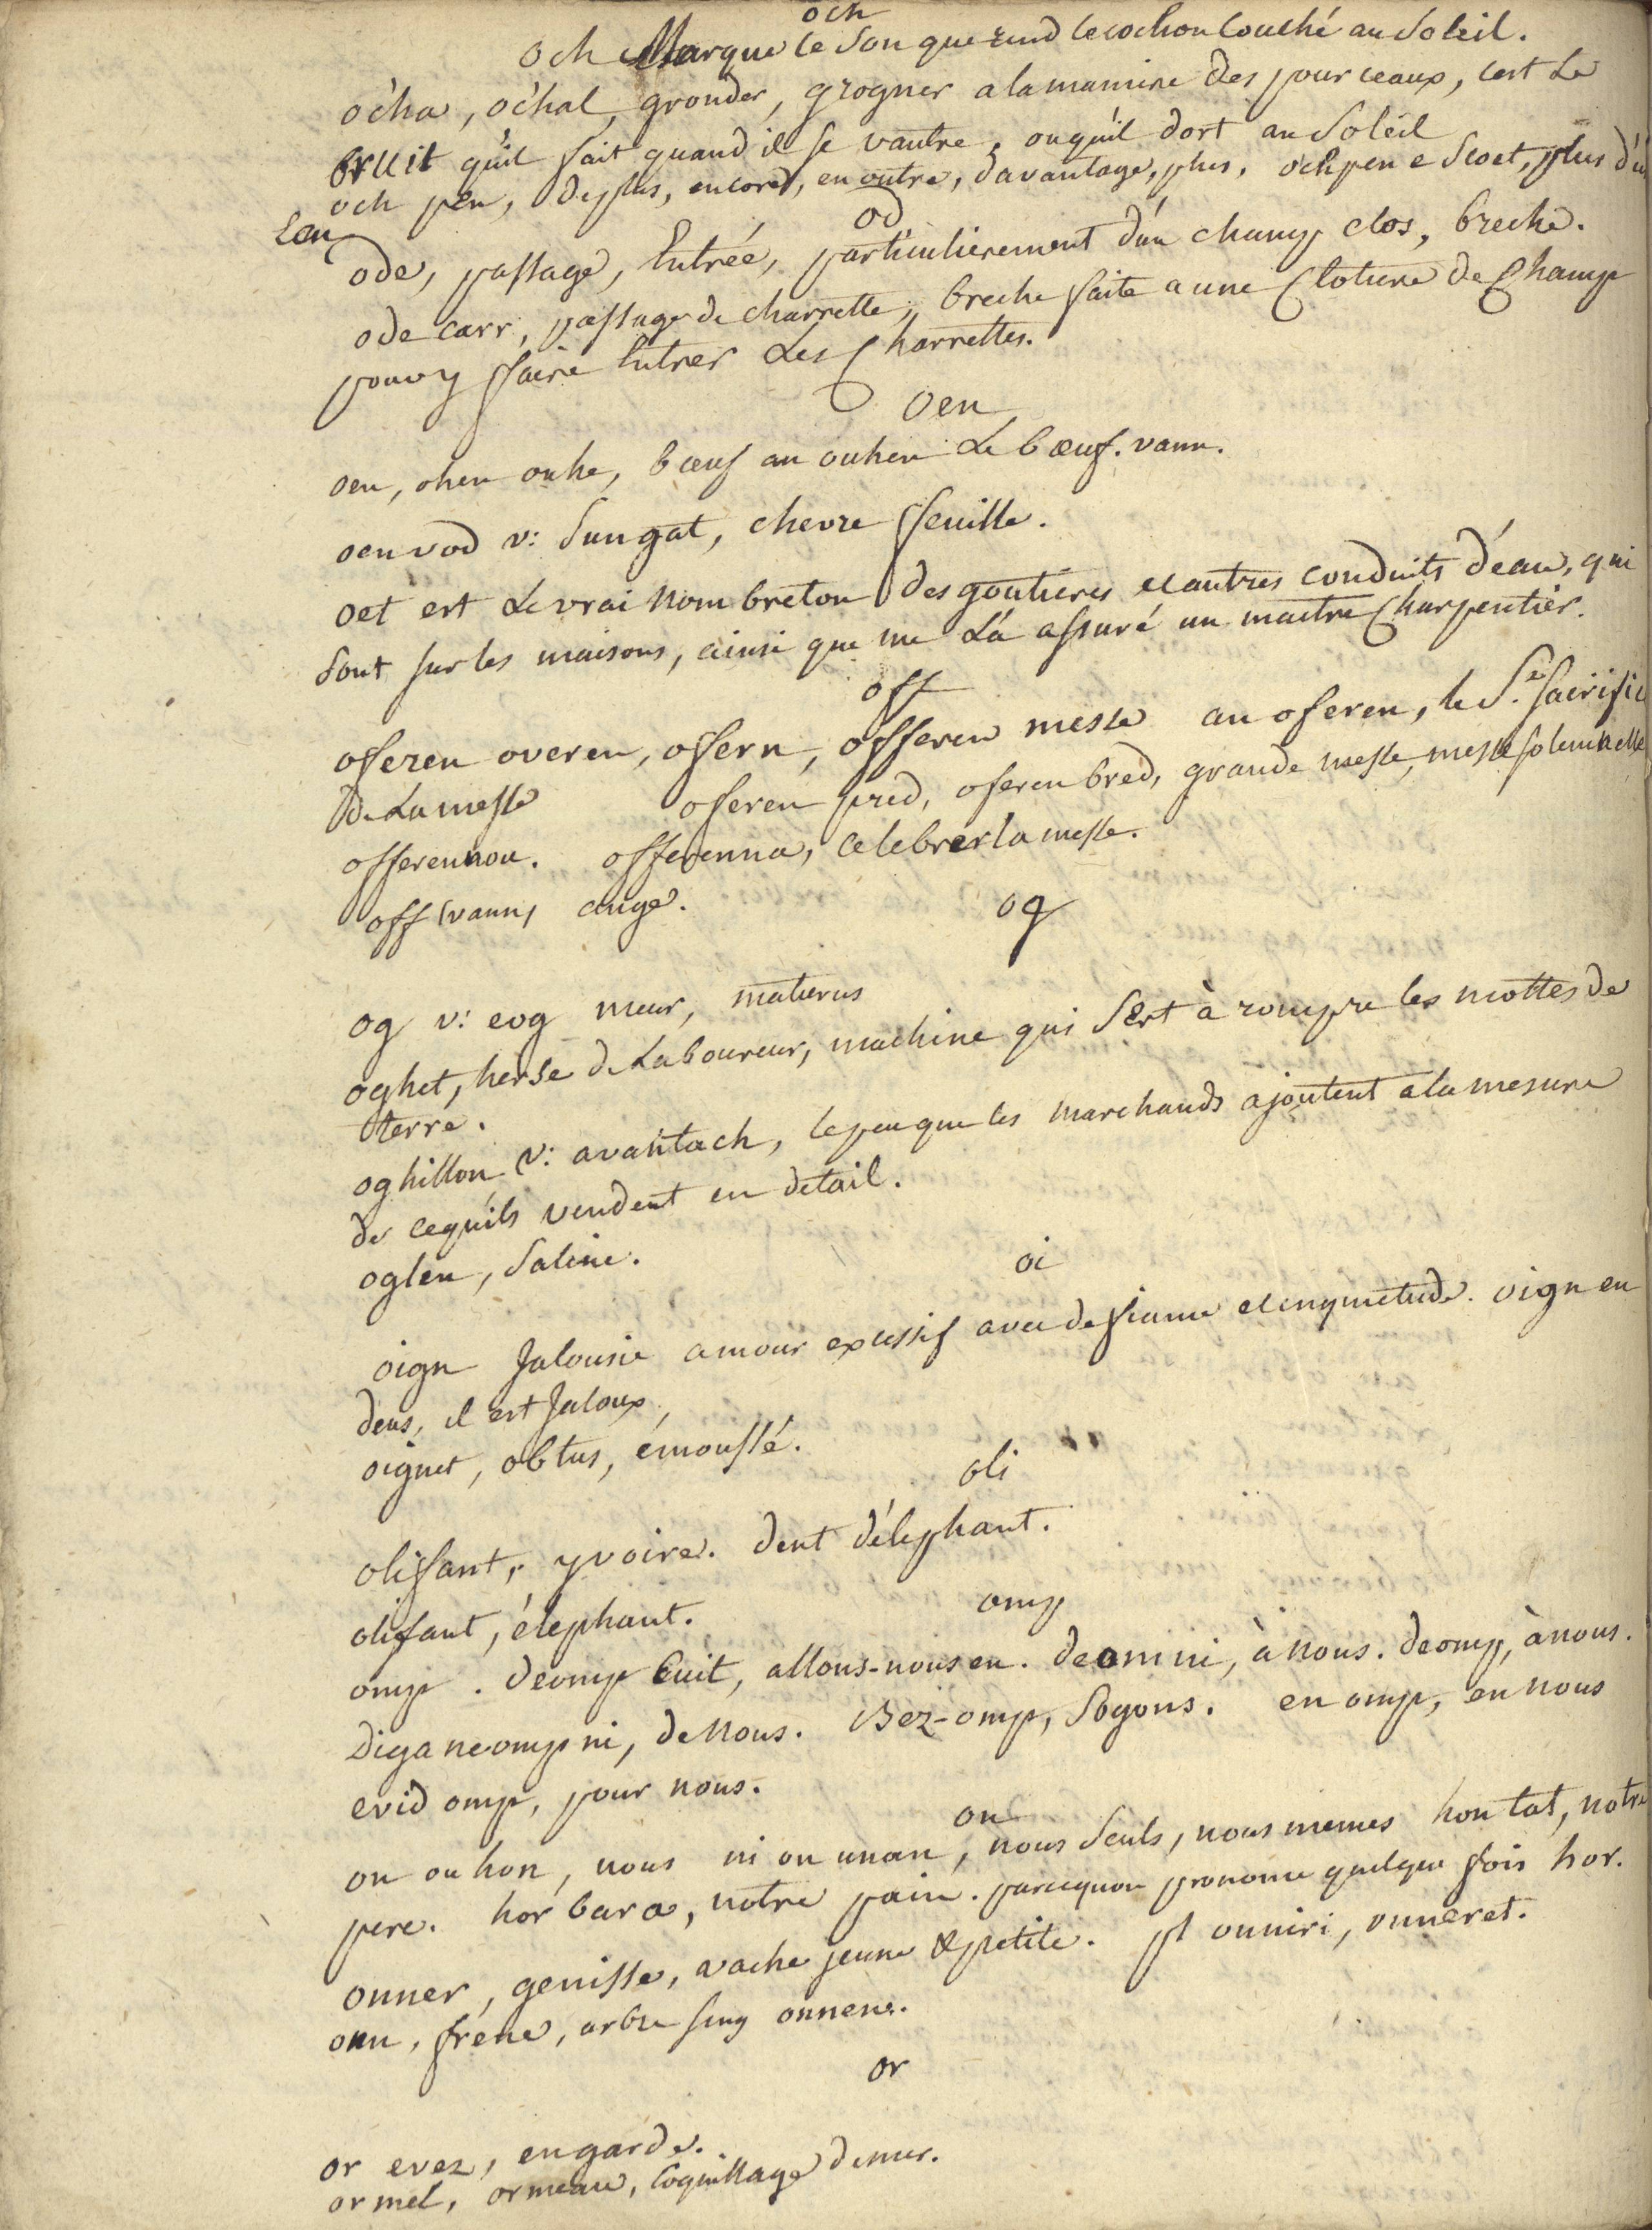 och
och Marque le son que rend le cochon couché au soleil.
ócha, óchal, gronder, grogner a la maniere des pourceaux, cest Le
bruit qu'il fait quand il se vautre, ou qu'il dort au soleil
och pen, deplus, encore, en outre, davantage, plus. ochpen e scoet, plus d'un
Ecu
od
ode, passage, Entrée, particulierement d'un champ clos, breche.
ode carr, passage de charrette, breche faite a une Cloture de Champ
pour y faire Entrer Les Charrettes.
oen
oen, ohen ouhe, bœuf an ouhen Le bœuf. vann.
oenvod v: sungat, chevre feuille.
oet est Le vrai nom breton des goutieres et autres conduits d'eau, qui
sont sur les maisons, ainsi que me L'a assuré un maitre Charpentier.
off
oferen overen, ofern, offeren messe an oferen, le St. sacrifice
de La messe oferen pred, oferen bred, grande messe, messe solemnelle
offerennou. offerenna, celebrer la messe.
off (vann) auge.
og
og v: eog meur, maturus
oghet, herse de Laboureur, machine qui sert à rompre les mottes de
terre.
oghillon v: avantach, le peu que les marchands ajoutent a la mesure
de cequ'ils vendent en detail.
oglen, saline.
oi
oign Jalousie amour excessif avec defiance et inquietude. oign en
deus, il est Jaloux,
oignet, obtus, émoussé.
oli
olifant, yvoire. dent d'élephant.
olifant, élephant.
omp
omp. deomp Cuit, allons-nous en. deomni, à nous. deomp, à nous.
Diganeomp ni, de nous. Bez-omp, soyons. en omp, en nous
evid omp, pour nous.
on
on ou hon, nous ni on unan, nous seuls, nous memes hon tat, notre
pere. hor bara, notre pain. parcequon prononce quelque fois hor.
onner, genisse, vache jeune & petite. pl ouniri, onneret.
onn, frêne, arbre sing onnene.
or
or evez, en garde.
ormel, ormeau, Coquillage de mer.